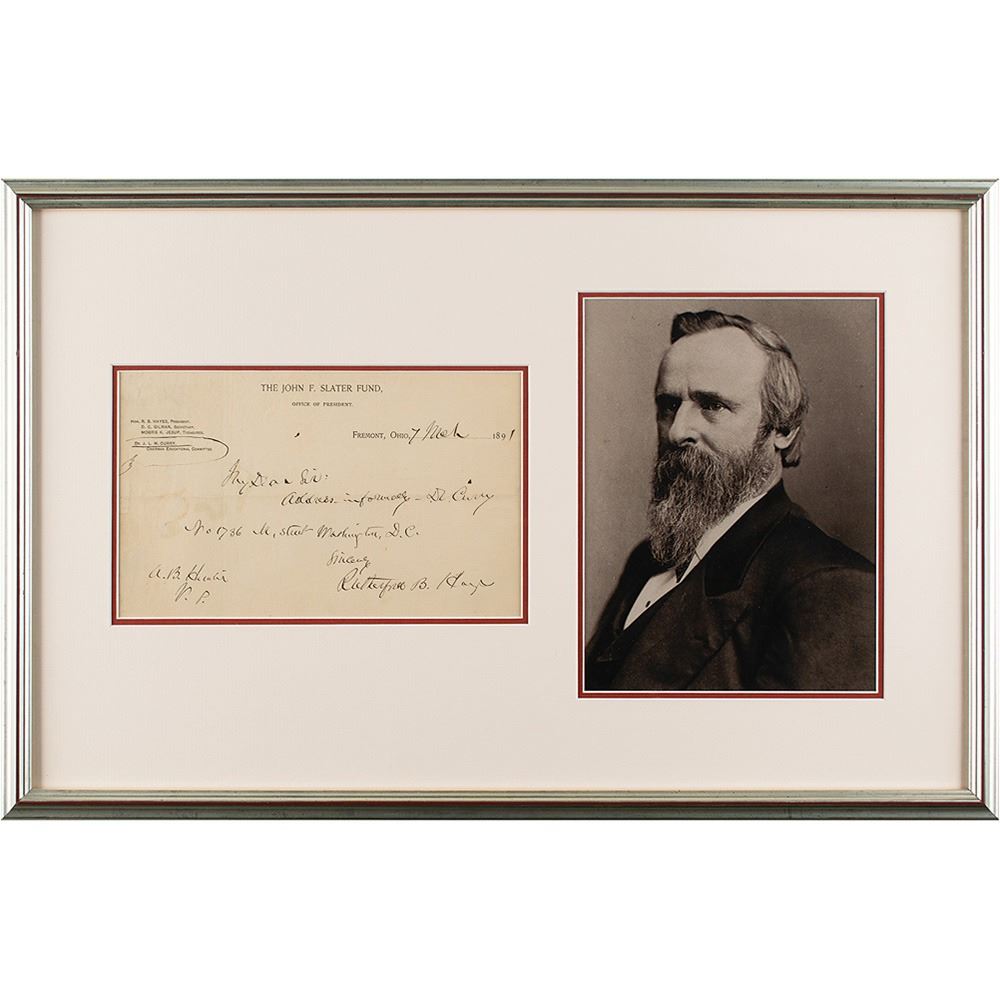 THE JOHN F. SLATER FUND,
OFFICE OF PRESIDENT.
HON. R. B. HAYES, PRESIDENT.
D. C. GILMAN, SECRETARY.
MORRIS K. JESUP, TREASURER.
DR. J. L. M. CURRY,
CHAIRMAN EDUCATIONAL COMMITTEE.
FREMONT, OHIO, 7 Mch 1891
My Dear Sir:
Address informally - Dr Curry
No 1736 M, street Washington, D.C.
Sincerely
Rutherford B. Hayes
A.B.
V. P.